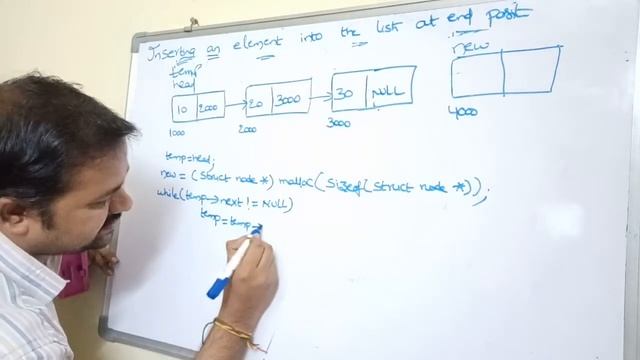 Inserting an element into the list at end posit
temp
head
new
10 2000
20 3000
30 NULL
1000
2000
3000
4000
temp=head;
new = (struct node *) malloc(sizeof(struct node *));
while(temp→next != NULL)
temp = temp→